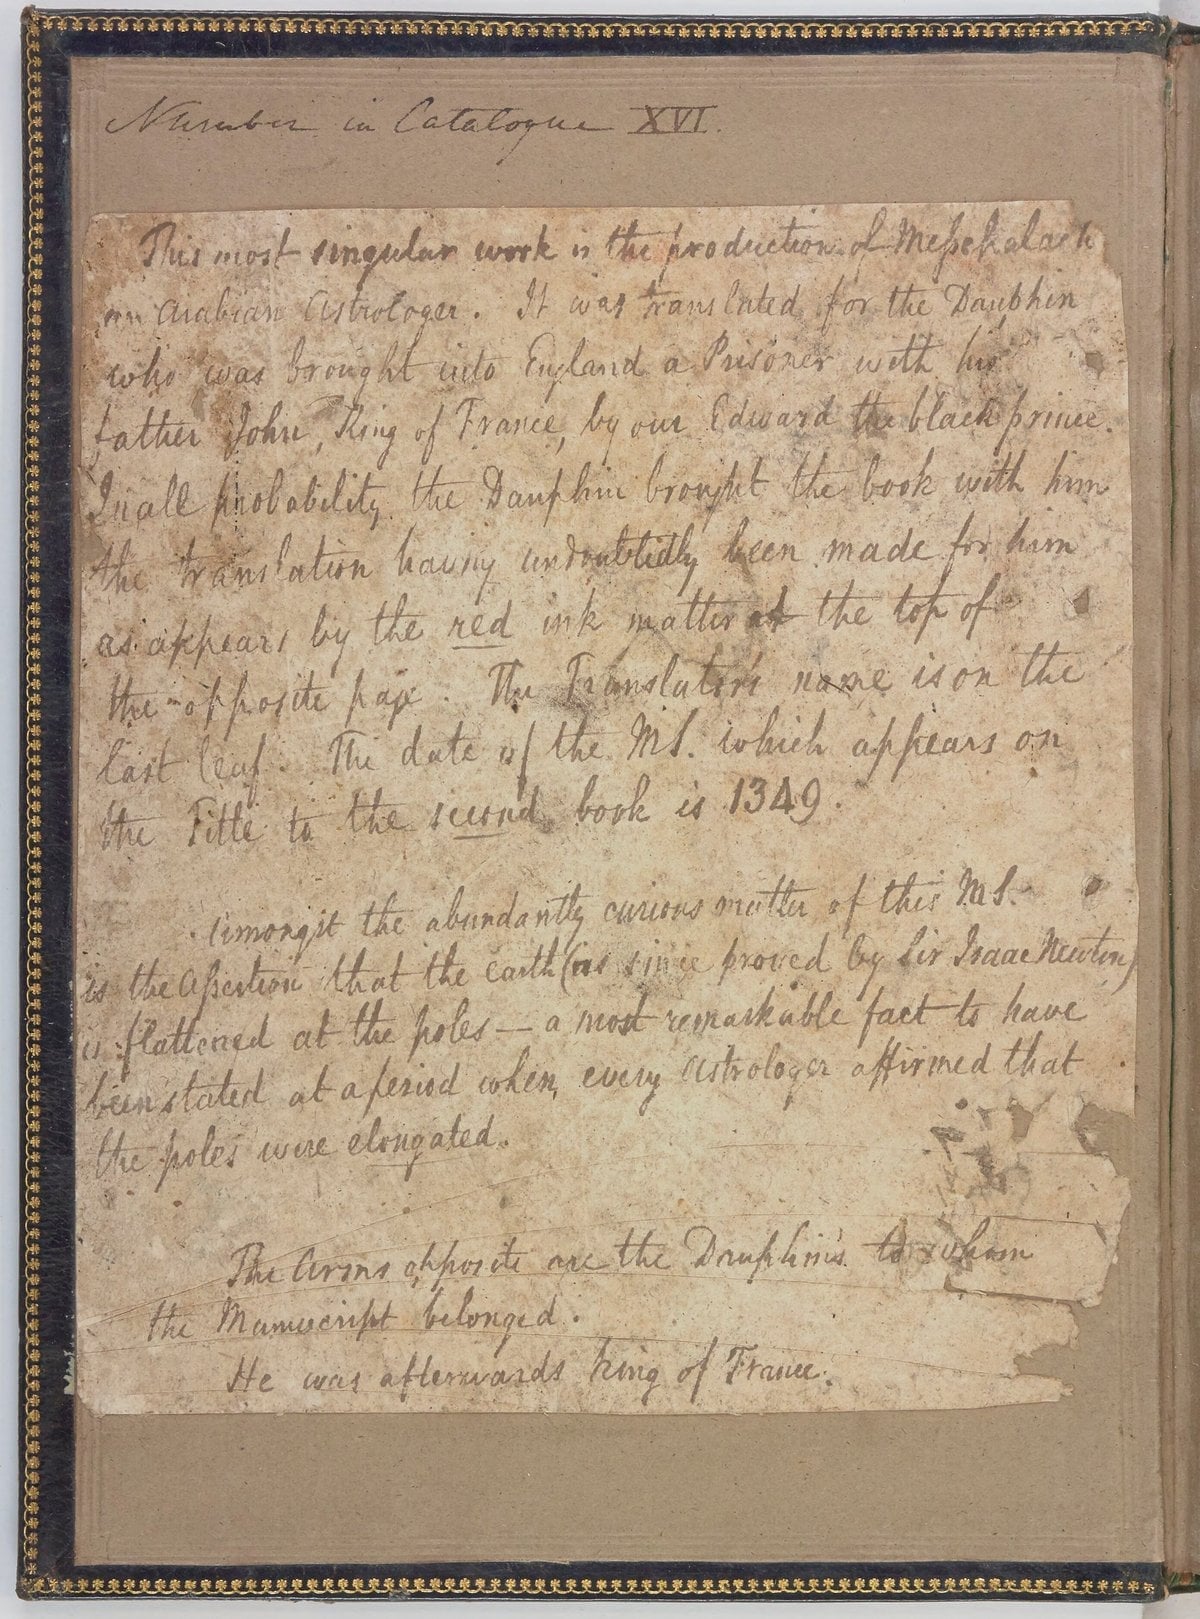 Number in Catalogue XVI.
This most singular work is the production of Messehalach
an Arabian Astrologer. It was translated for the Dauphin
who was brought into England a Prisoner with his
father John, King of France, by our Edward the black prince.
In all probability the Dauphin brought the book with him
the translation having undoubtedly been made for him
as appears by the red ink matter at the top of
the opposite page. The Translator's name is on the
last leaf. The date of the MS. which appears on
the Title to the second book is 1349.
Amongst the abundantly curious matter of this MS.
is the assertion that the earth (as since proved by Sir Isaac Newton)
is flattened at the poles — a most remarkable fact to have
been stated at a period when every astrologer affirmed that
the poles were elongated.
The Arms opposite are the Dauphin's to whom
the Manuscript belonged.
He was afterwards King of France.